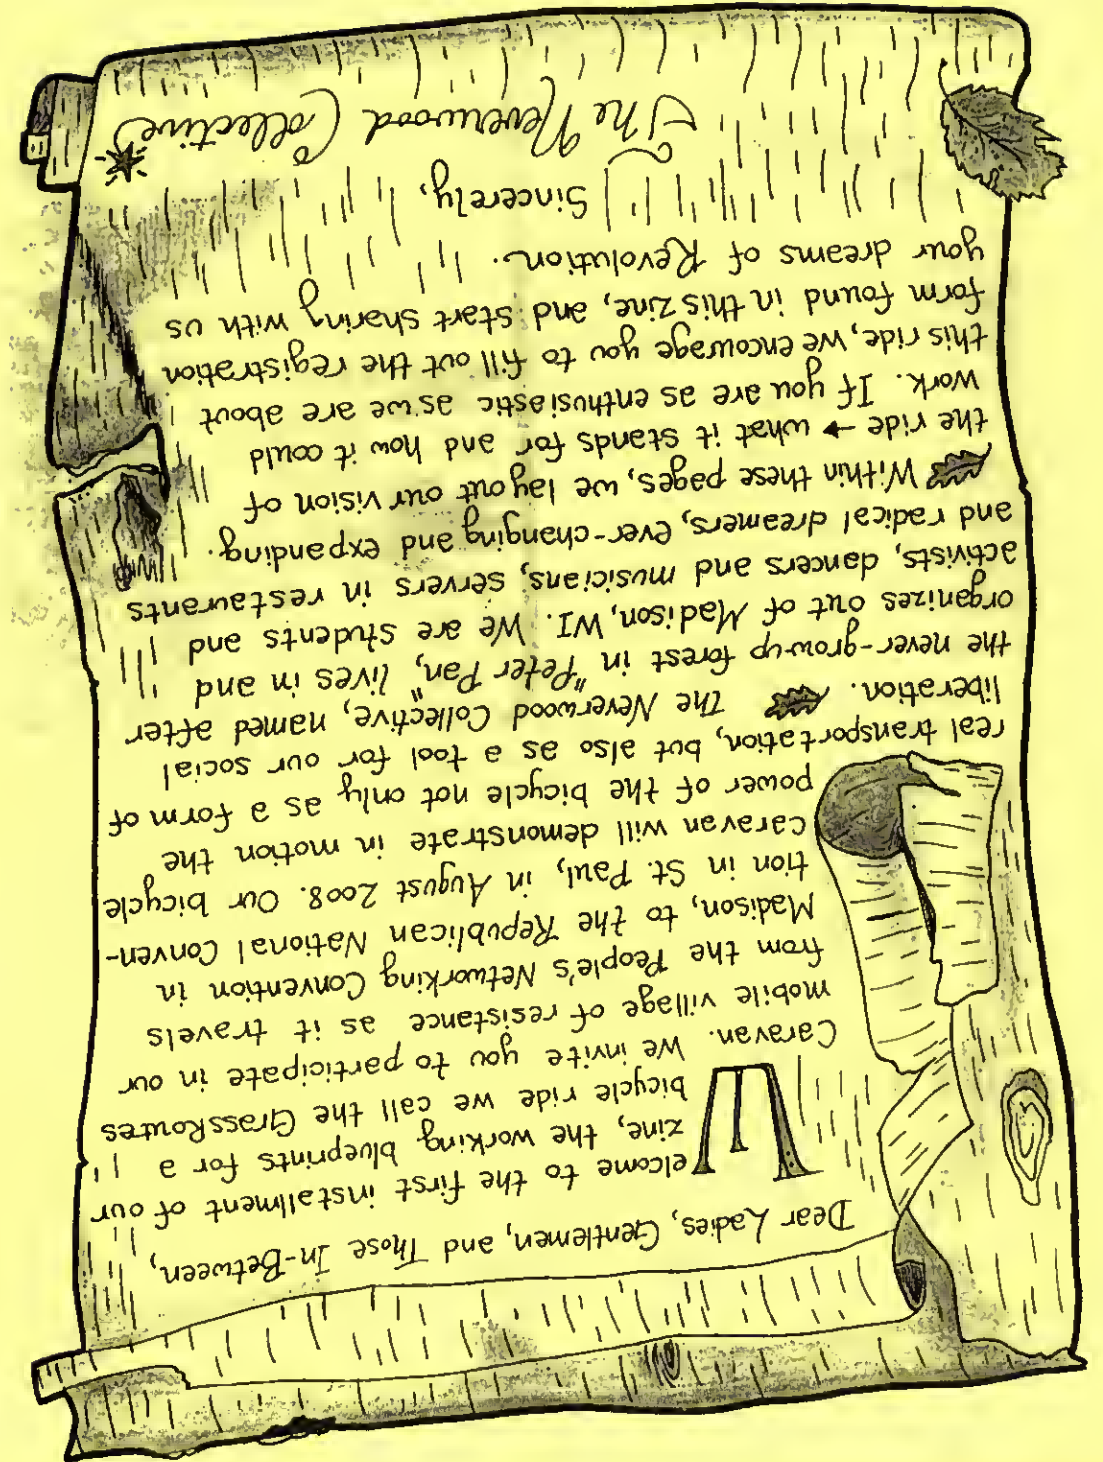 Dear Ladies, Gentlemen, and Those In-Between,
Welcome to the first installment of our
zine, the working blueprints for a
bicycle ride we call the GrassRoutes
Caravan. We invite you to participate in our
mobile village of resistance as it travels
from the People's Networking Convention in
Madison, to the Republican National Conven-
tion in St. Paul, in August 2008. Our bicycle
caravan will demonstrate in motion the
power of the bicycle not only as a form of
real transportation, but also as a tool for our social
liberation. The Neverwood Collective, named after
the never-grow-up forest in "Peter Pan," lives in and
organizes out of Madison, WI. We are students and
activists, dancers and musicians, servers in restaurants
and radical dreamers, ever-changing and expanding.
Within these pages, we layout our vision of
the ride → what it stands for and how it could
work. If you are as enthusiastic as we are about
this ride, we encourage you to fill out the registration
form found in this zine, and start sharing with us
your dreams of Revolution.
Sincerely,
The Neverwood Collective